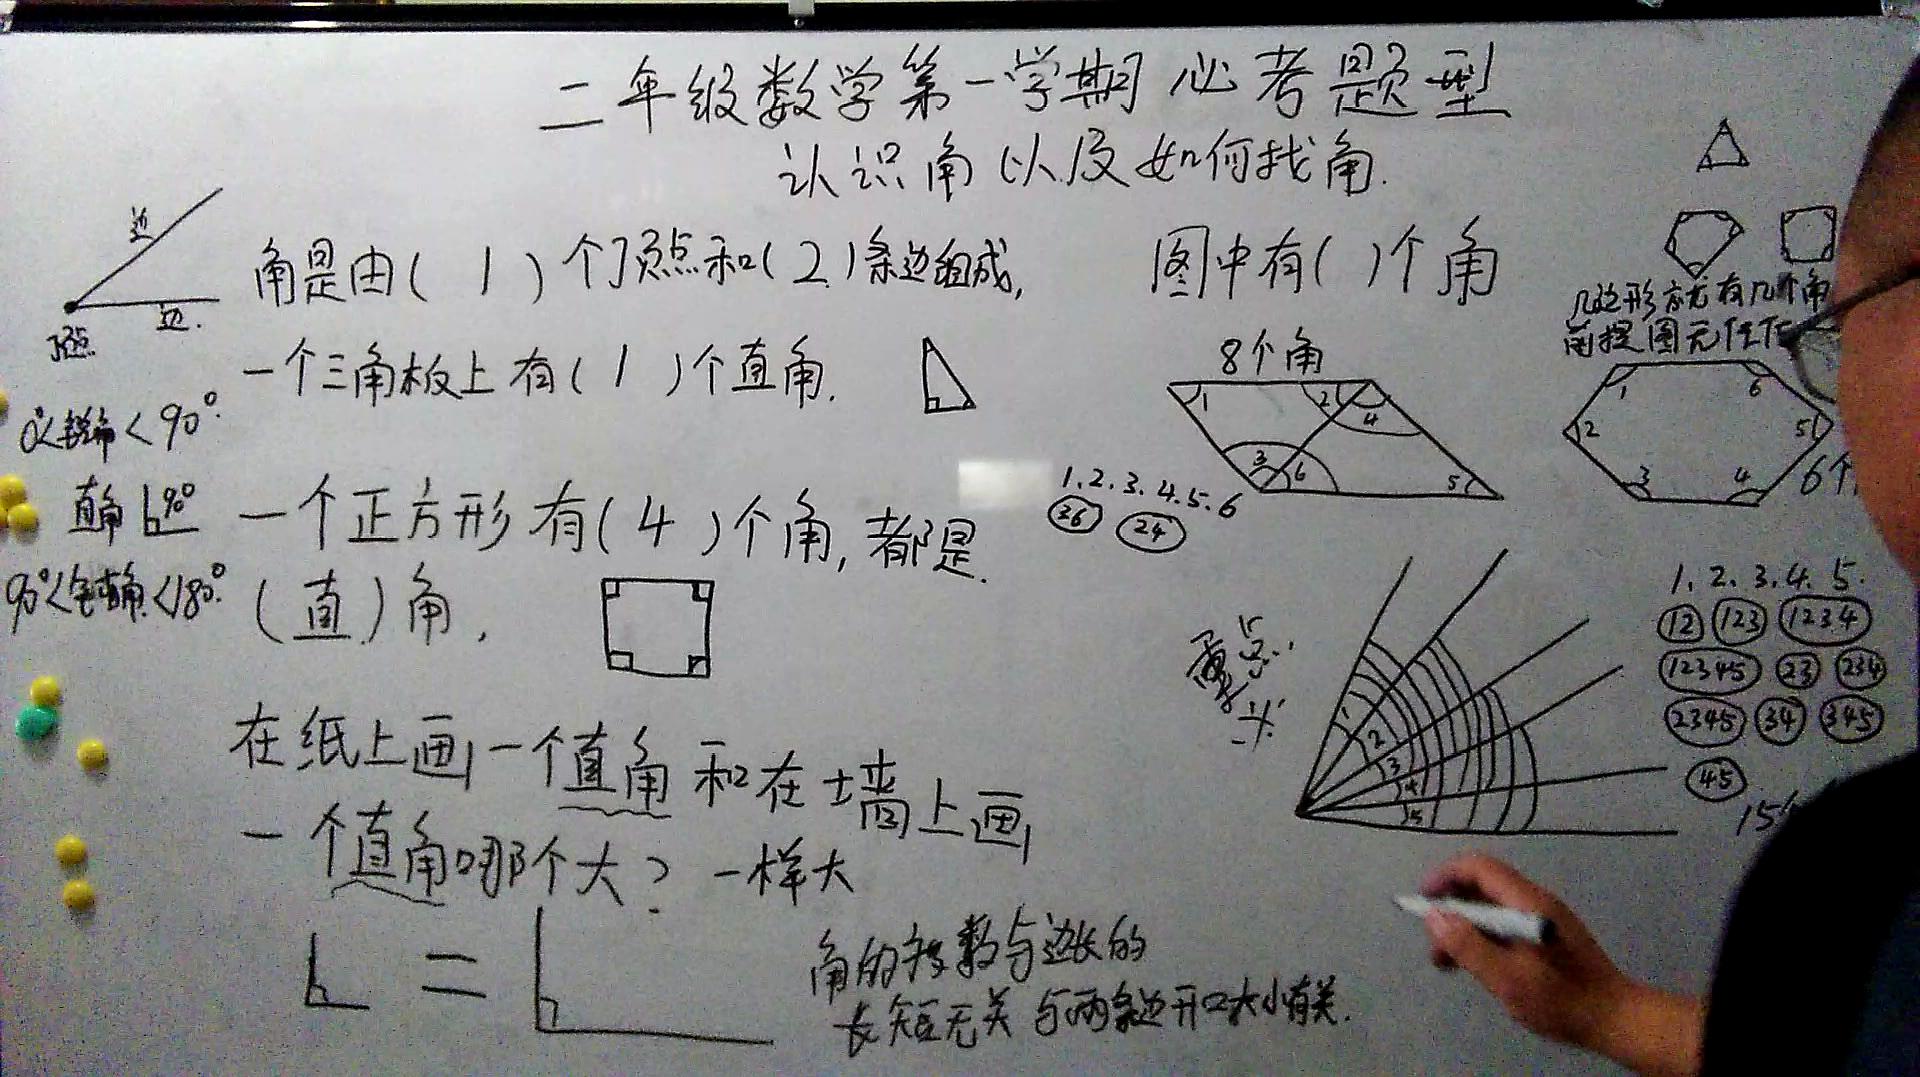 二年级数学第一学期必考题型
认识角以及如何找角.
边
边.
顶点.
角是由( 1 )个顶点和(2)条边组成,
一个三角板上有( 1 )个直角.
0°<锐角<90°.
直角 90°
90°<钝角<180°.
一个正方形有( 4 )个角,都是.
(直)角,
在纸上画一个直角和在墙上画
一个直角哪个大? 一样大
=
角的度数与边长的
长短无关与两条边开口大小有关.
图中有( )个角
8个角
1
2
3
4
5
6
1.2.3.4.5.6
36 24
几边形就有几个角
前提图无任何
1
2
3
4
5
6
6个
重点
1
2
3
4
5
1.2.3.4.5.
12 123 1234
12345 23 234
2345 34 345
45
15个